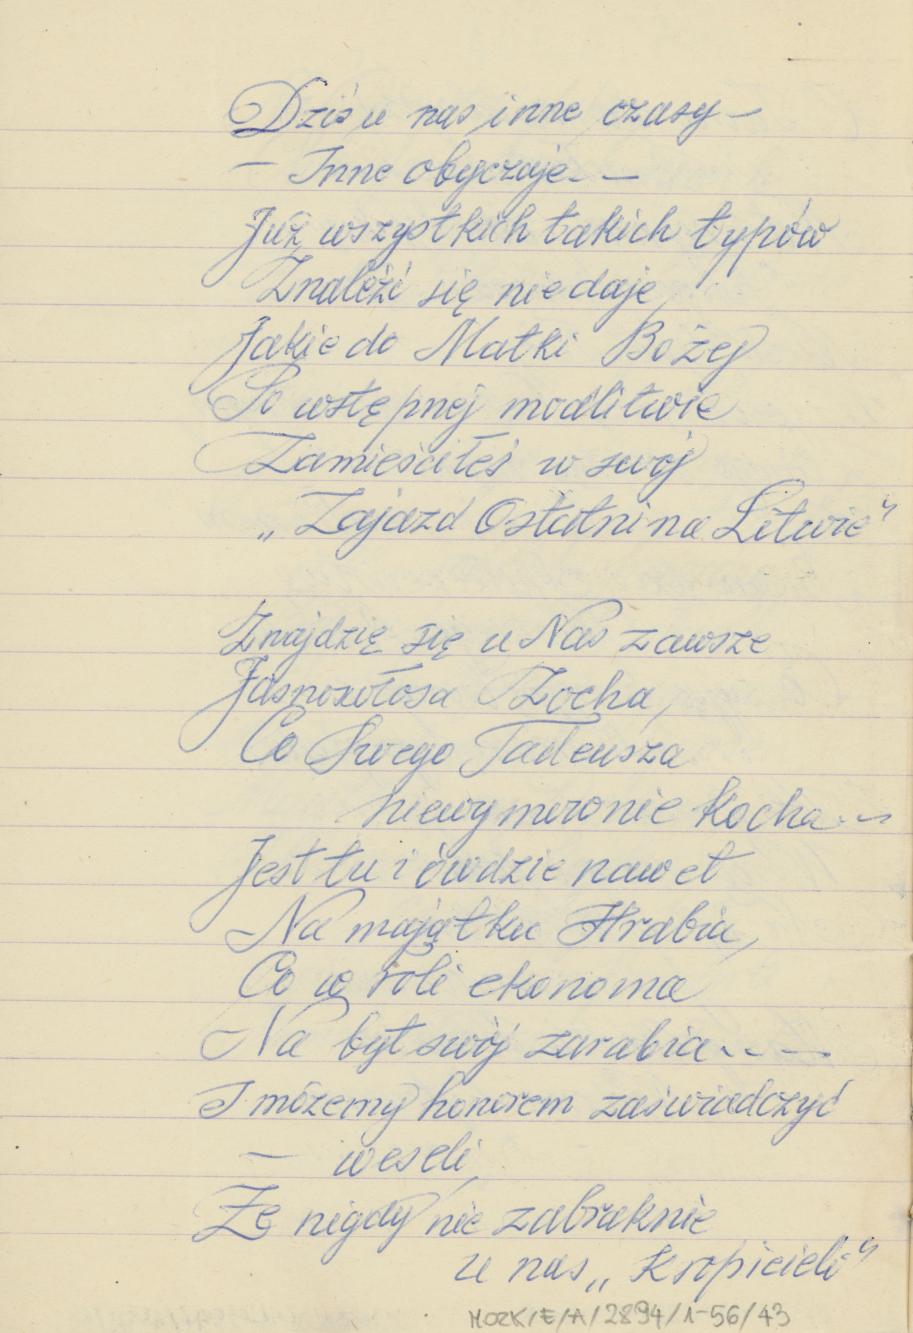 Dziś u nas inne czasy –
– Inne obyczaje. –
Już wszystkich takich typów
Znaleźć się niedaje,
Jakie do Matki Bożej
Po wstępnej modlitwie
Zamieściłeś w swój
„Zajazd Ostatni na Litwie"
Znajdzię się u Nas zawsze
Jasnowłosa Zocha,
Co Swego Tadeusza
niewymownie kocha. –
Jest tu i ówdzie nawet
Na majątku Hrabia,
Co w roli ekonoma
Na byt swój zarabia.. –
I możemy honorem zaświadczyć
– weseli,
Że nigdy nie zabraknie
u nas „Kropicieli"
MOZK/E/A/2894/1-56/43